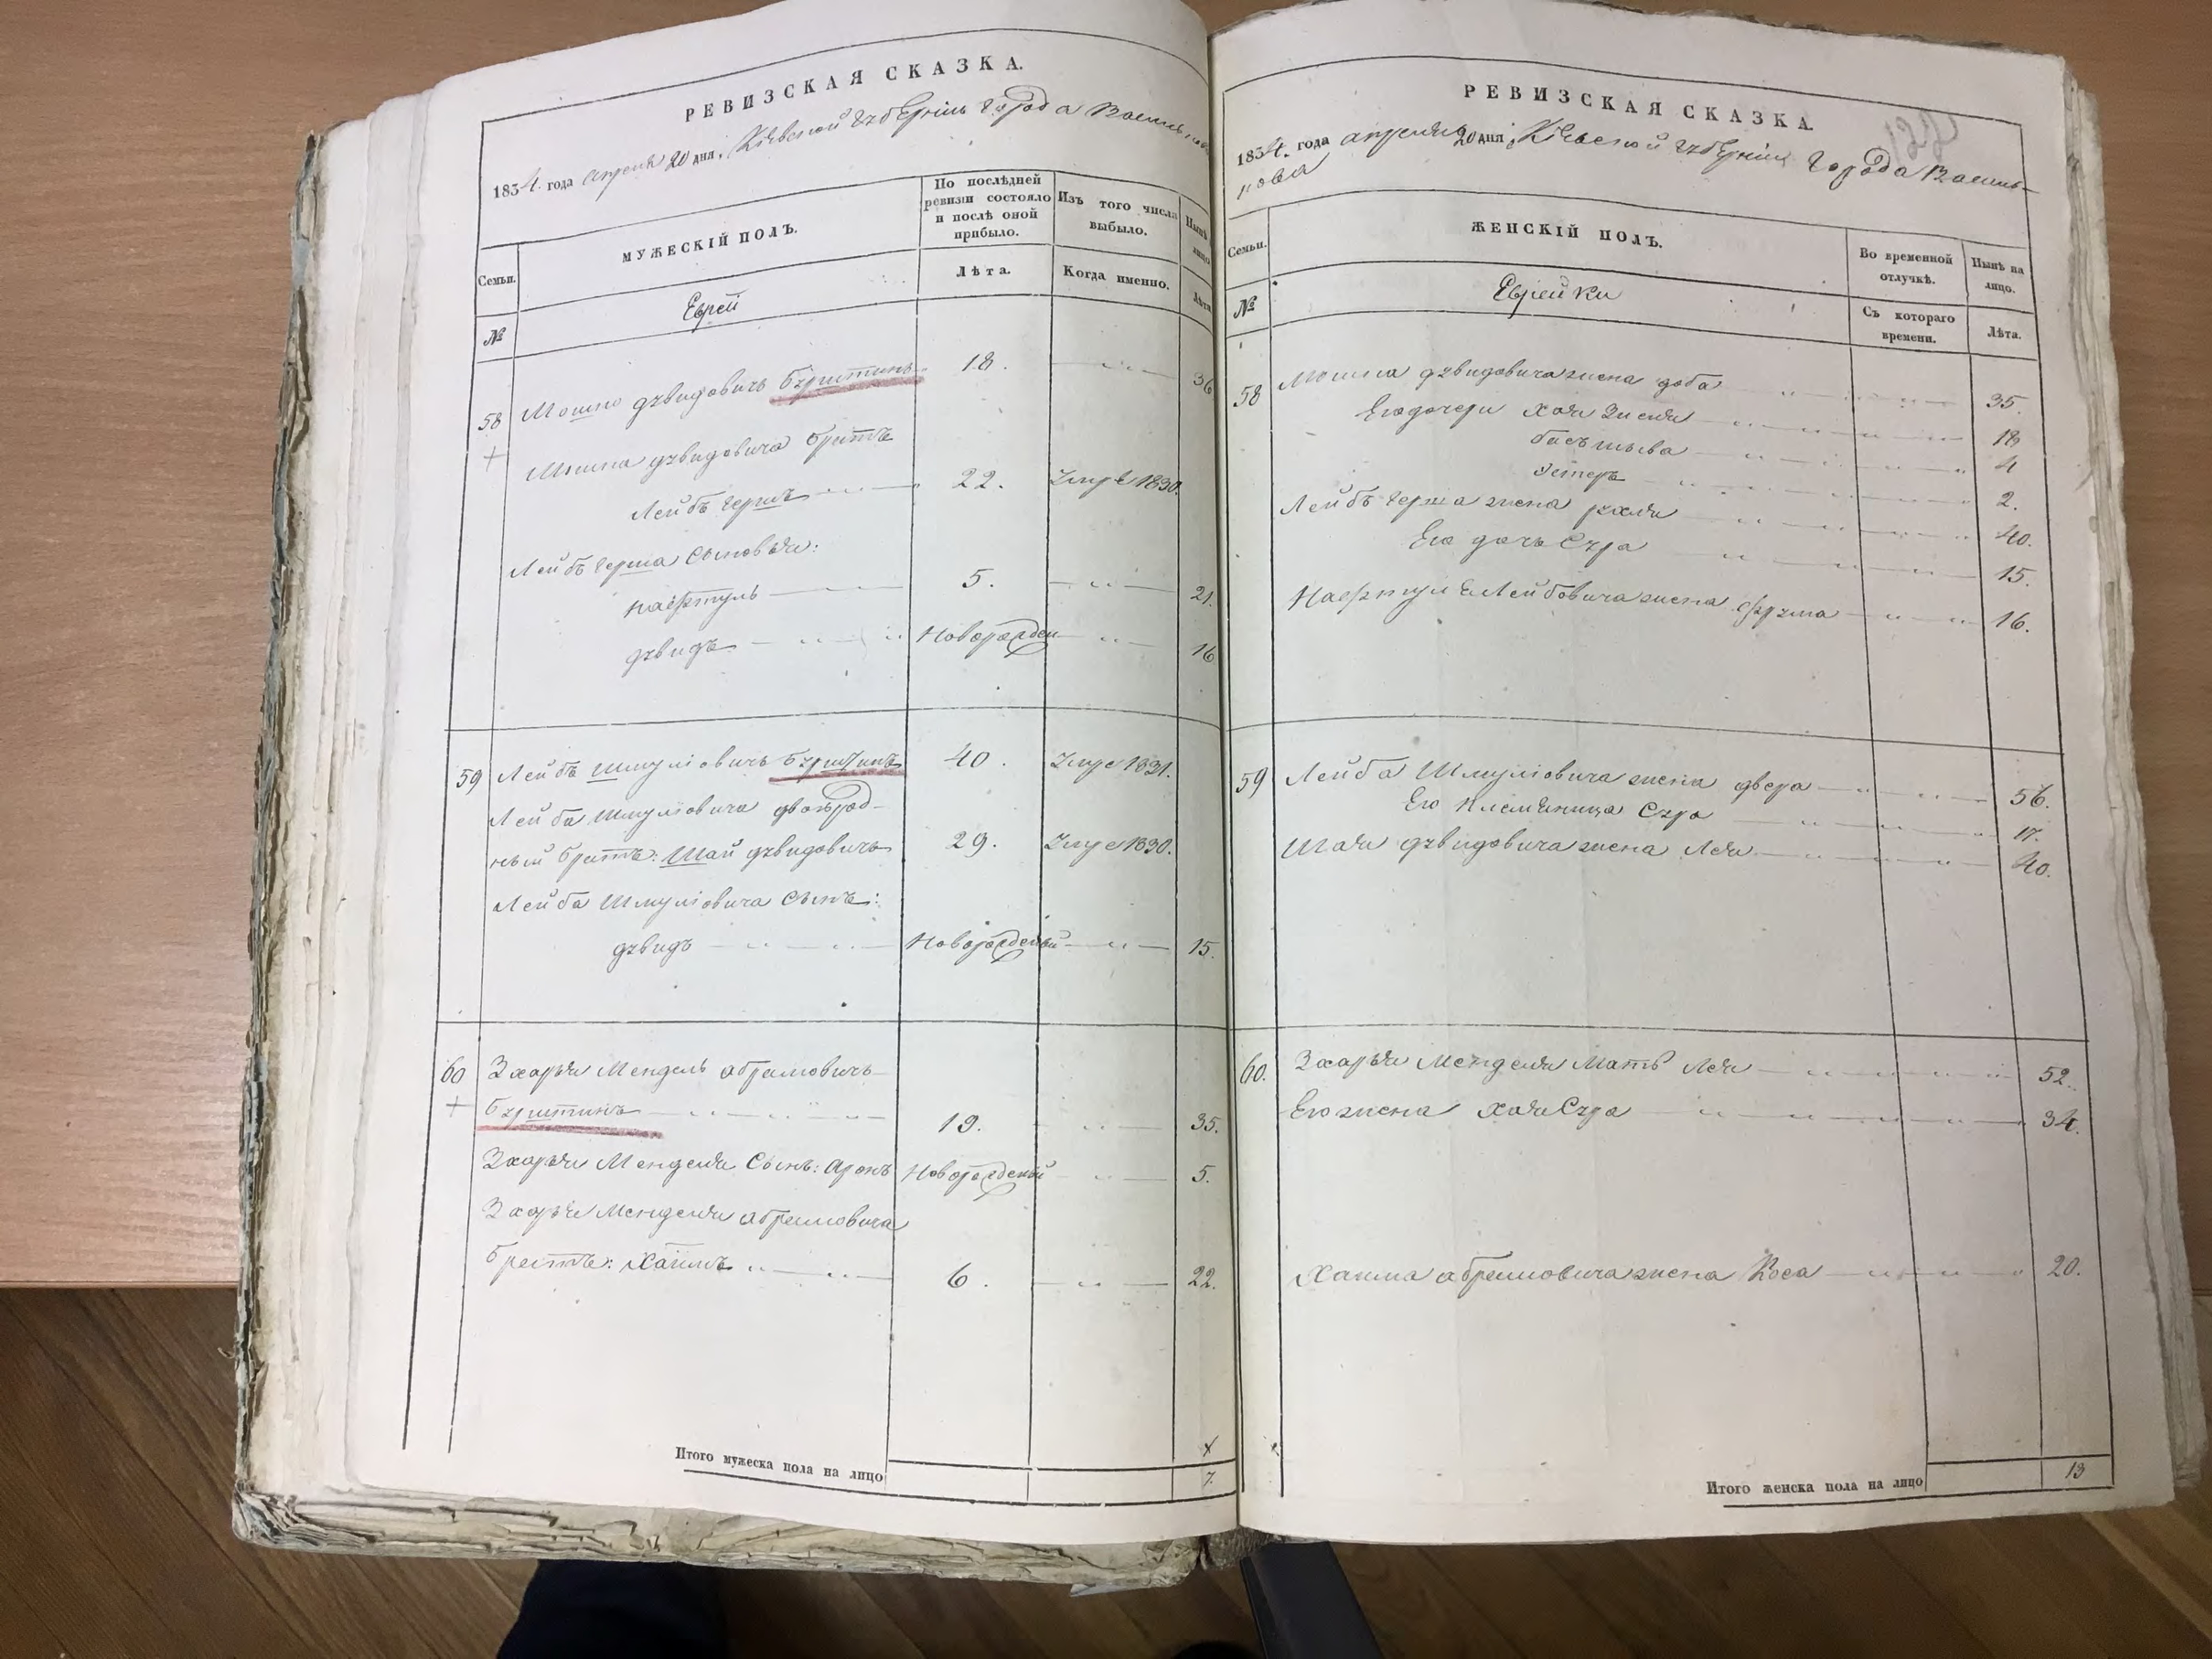 РЕВИЗСКАЯ СКАЗКА.
1834. года апреля 20 дня, Кіевской губерніи города Василькова
Семьи.
МУЖЕСКІЙ ПОЛЪ.
По послѣдней ревизіи состояло и послѣ оной прибыло.
Изъ того числа выбыло.
Нынѣ на лицо
Лѣта.
Когда именно.
Лѣта
№
Еврей
58 Мошко Дувидовичъ Бурштинъ 18. 36
Мошка Дувидовича братъ
Лейбъ Гершъ 22. Умре 1830.
Лейбъ Герша сыновья:
Нафтуль 5. 21.
Дувидъ Новорожден 16
59 Лейбъ Шмуліовичъ Бурштинъ 40. Умре 1831.
Лейба Шмуліовича двоюрод-
ный братъ: Шая Дувидовичъ 29. Умре 1830.
Лейба Шмуліовича сынъ:
Дувидъ Новорожденый 15.
60 Зхарья Мендель Абрамовичъ
Бурштинъ 19. 35.
Зхарья Менделя сынъ: Аронъ Новорожденый 5.
Зхарья Менделя Абрамовича
братъ: Хаимъ 6. 22.
Итого мужеска пола на лицо 7.
РЕВИЗСКАЯ СКАЗКА.
1834. года апреля 20 дня, Кіевской губерніи города Василь-
кова
Семьи.
ЖЕНСКІЙ ПОЛЪ.
Во временной отлучкѣ.
Нынѣ на лицо.
№
Еврейки
Съ котораго времени.
Лѣта.
58 Мошка Дувидовича жена Доба 35.
Его дочери Хая Зисля 18
Басъшева 4
Эстеръ 2.
Лейбъ Герша жена Рахля 40.
Его дочь Сура 15.
Нафтуля Лейбовича жена Фрума 16.
59 Лейба Шмуліовича жена Двера 56.
Его племяница Сура 17.
Шая Дувидовича жена Лея 40.
60. Зхарья Менделя мать Лея 52.
Его жена Хая Сура 34.
Хаима Абрамовича жена Роса 20.
Итого женска пола на лицо 13